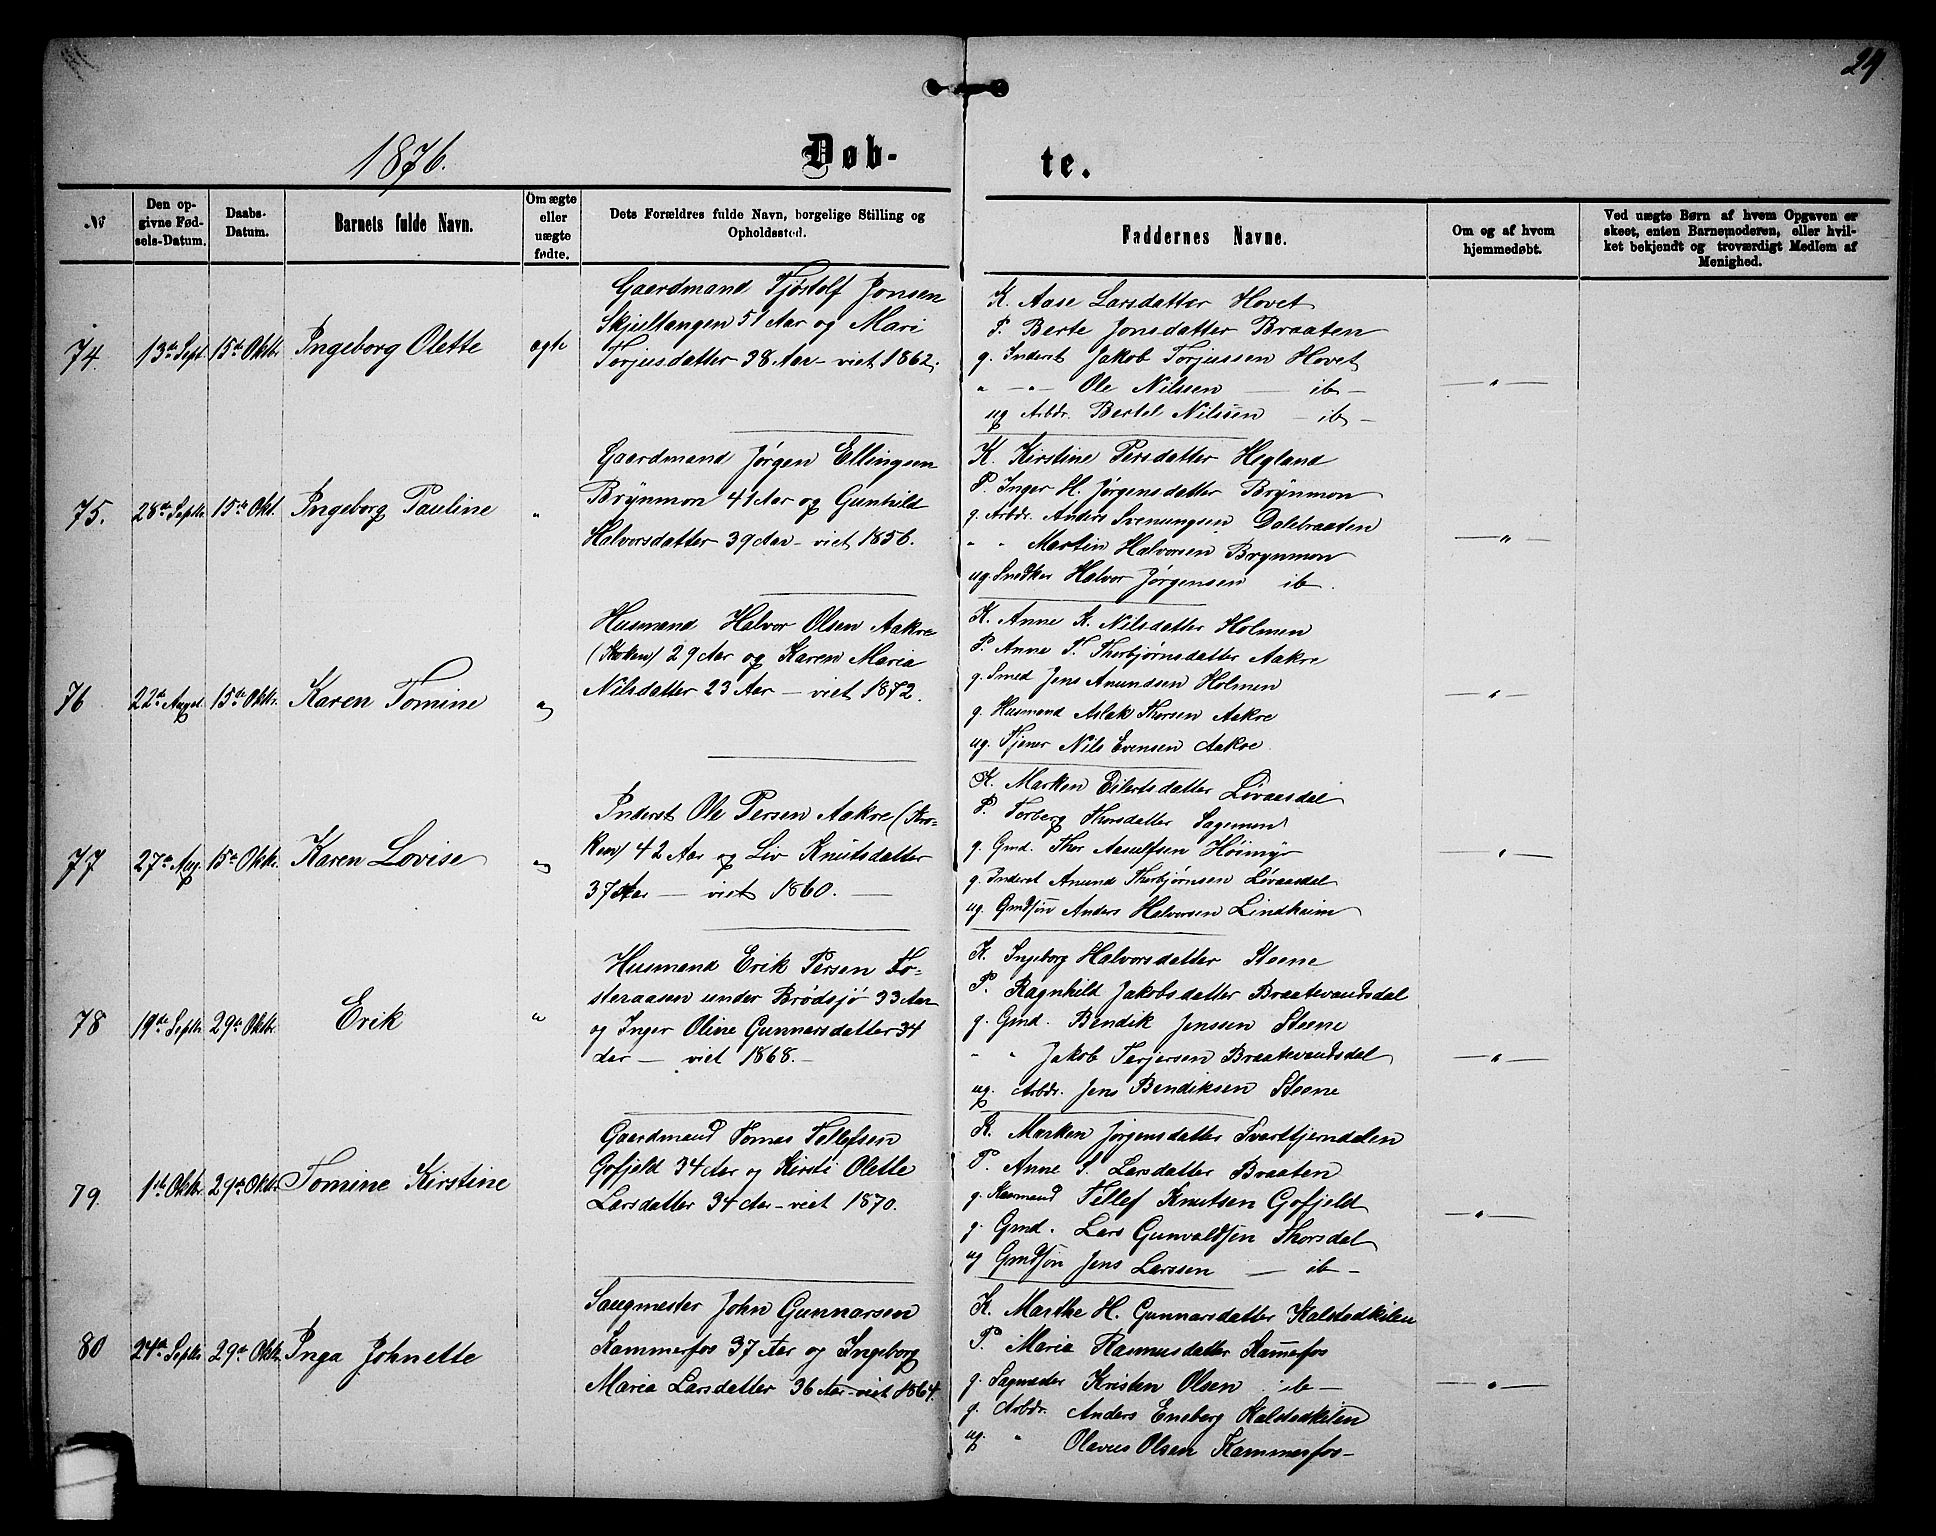 24
1876.
Døb-
te.
№
Den op-
givne Fød-
sels-Datum.
Daabs-
Datum.
Barnets fulde Navn.
Om ægte
eller
uægte
fødte.
Dets Forældres fulde Navn, borgelige Stilling og
Opholdssted.
Faddernes Navne.
Om og af hvem
hjemmedøbt.
Ved uægte Børn af hvem Opgaven er
skeet, enten Barnemoderen, eller hvil-
ket bekjendt og troværdigt Medlem af
Menighed.
74.
13de Sept
15de Oktbr.
Ingeborg Olette
ægte
Gaardmand Tjøstolf Jonsen
Skjultangen 51 Aar og Mari
Torjusdatter 38 Aar – viet 1862.
K. Aase Larsdatter Hovet
P. Berte Jonsdatter Braaten
g. Inderst Jakob Torjussen Hovet
" – " – Ole Nilssen — ib –
ug Arbdr. Bertel Nilssen – ib –
— " —
75.
28de Septbr.
15de Okt.
Ingeborg Pauline
"
Gaardmand Jørgen Ellingsen
Brynmon 41 Aar og Gunhild
Halvorsdatter 39 Aar – viet 1856.
K. Kirstine Persdatter Hegland
P. Inger H. Jørgensdatter Brynmon
g. Arbdr. Anders Svenungsen Dalebraaten
" " Martin Halvorsen Brynmon
ug. Snedker Halvor Jørgensen ib.
— " —
76
22de August
15de Oktbr.
Karen Tomine
"
Husmand Halvor Olsen Aakre
(Kroken) 29 Aar og Karen Maria
Nilsdatter 23 Aar – viet 1872.
K. Anne K. Nilsdatter Holmen
P. Anne T. Thorbjørnsdatter Aakre
g. Smed Jens Anundsen Holmen
g. Husmand Aslak Thorsen Aakre
ug. Tjener Nils Evensen Aakre.
— " —
77
27de Aug.
15de Oktbr.
Karen Lovise
"
Inderst Ole Persen Aakre (Kro-
ken) 42 Aar og Liv Knutsdatter
37 Aar — viet 1860. —
K. Marken Eilertsdatter Løvaasdal
P. Torberg Thorsdatter Sagmen
g. Gmd. Thor Aasulfsen Høimyr
g. Inderst Anund Thorbjørnsen Løvaasdal
ug. Gmdsøn Anders Halvorsen Lindheim
— " —
78
19de Septbr.
29de Oktbr.
Erik
"
Husmand Erik Persen To-
steraasen under Brødsjø 33 Aar
og Inger Oline Gunnarsdatter 34
Aar — viet 1868. –
K. Ingeborg Halvorsdatter Steene
P. Ragnhild Jakobsdatter Braatevandsdal
g. Gmd. Bendik Jenssen Steene
" " Jakob Terjersen Braatevandsdal
ug. Arbdr. Jens Bendiksen Steene
— " —
79.
1ste Oktbr.
29de Oktbr.
Tomine Kirstine
Gaardmand Tomas Tellefsen
Gofjeld 34 Aar og Kirsti Olette
Larsdatter 34 Aar – viet 1870.
K. Marken Jørgensdatter Svarttjerndalen
P. Anne S. Larsdatter Braaten
g. Kaarmand Tellef Knutsen Gofjeld
g. Gmd. Lars Gunvaldsen Thorsdal
ug Gmdsøn Jens Larssen — ib –
— " —
80
24de Septbr.
29de Oktbr.
Inga Johnette
Saugmester John Gunnarsen
Kammerfos 37 Aar og Ingeborg
Maria Larsdatter 36 Aar – viet 1864.
K. Marthe H. Gunnarsdatter Kalstadkilen
P. Maria Rasmusdatter Kammerfos
g. Sagmester Kristen Olsen ib –
g. Arbdr. Anders Eneberg Kalstadkilen
ug. " Olavus Olsen Kammerfos –
— " —